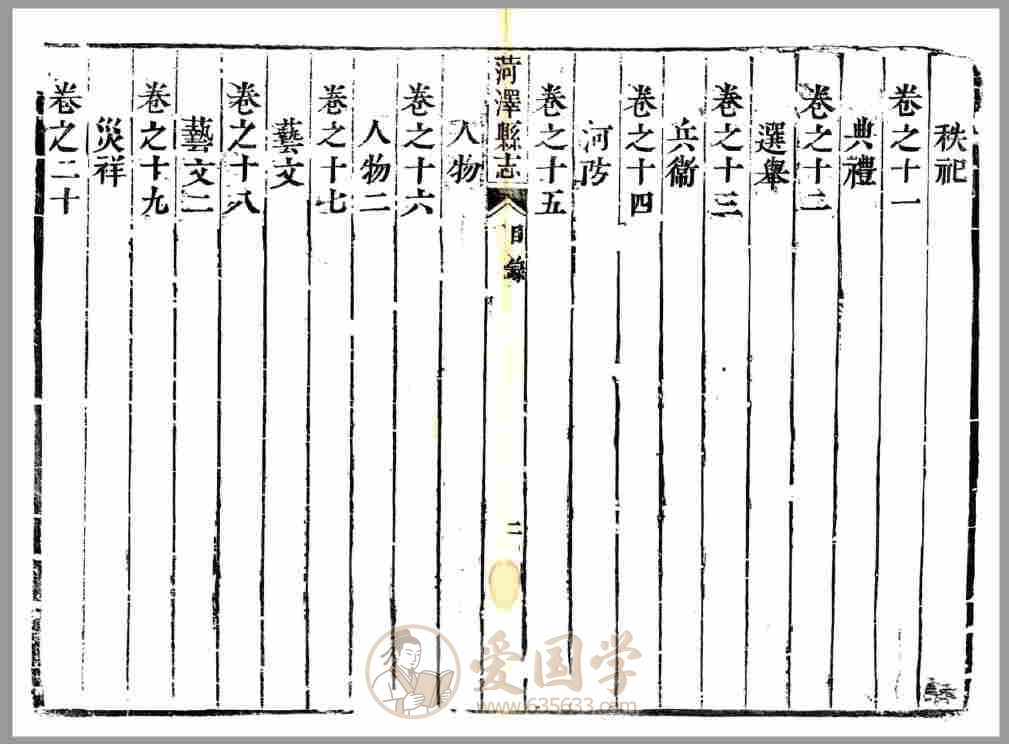 秩祀
卷之十一
典禮
卷之十二
選舉
卷之十三
兵衞
卷之十四
河防
卷之十五
菏澤縣志
目錄
二
人物
卷之十六
人物二
卷之十七
藝文
卷之十八
藝文二
卷之十九
災祥
卷之二十
爱国学
www.635633.com